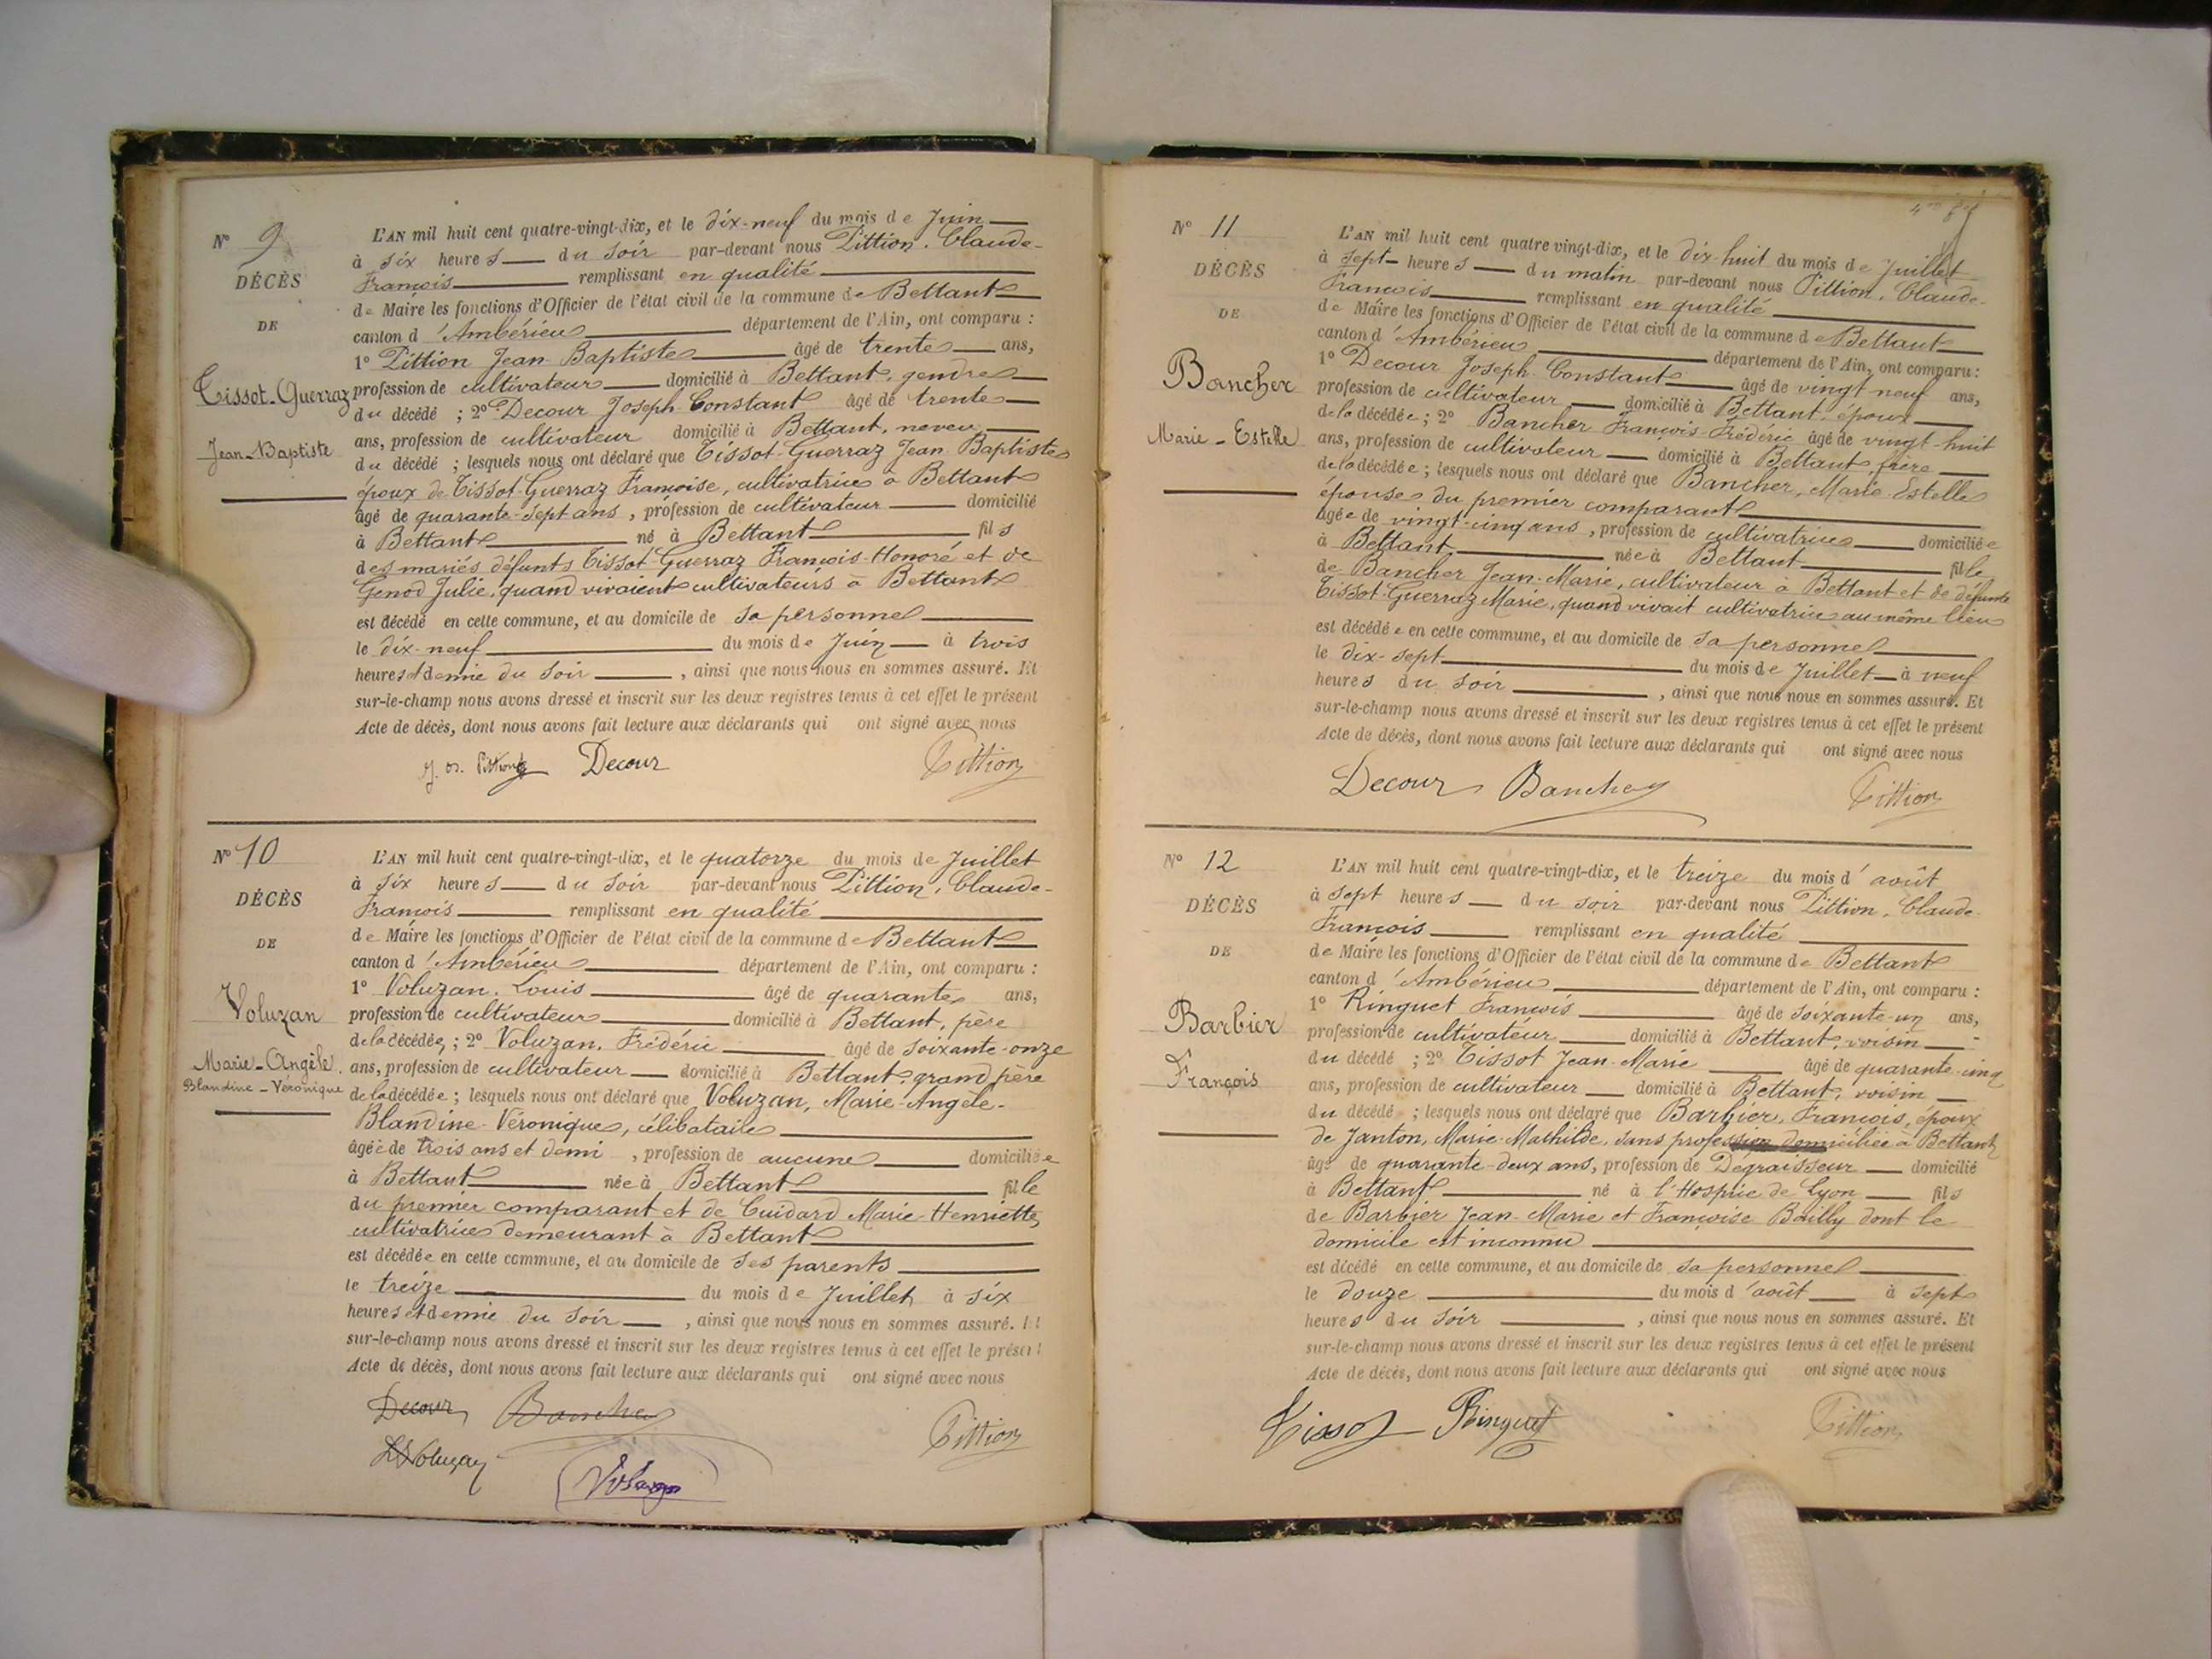 N° 9
DÉCÈS
DE
Tissot-Guerraz
Jean-Baptiste
L'AN mil huit cent quatre-vingt-dix, et le dix-neuf du mois de Juin
à six heures du soir par-devant nous Pittion, Claude-
François remplissant en qualité
de Maire les fonctions d'Officier de l'état civil de la commune de Bettant
canton d'Ambérieu département de l'Ain, ont comparu :
1° Pittion Jean-Baptiste âgé de trente ans,
profession de cultivateur domicilié à Bettant, gendre
du décédé ; 2° Decour Joseph Constant âgé de trente
ans, profession de cultivateur domicilié à Bettant, neveu
du décédé ; lesquels nous ont déclaré que Tissot-Guerraz Jean-Baptiste
époux de Tissot-Guerraz Françoise, cultivatrice à Bettant
âgé de quarante-sept ans, profession de cultivateur domicilié
à Bettant né à Bettant fils
des mariés défunts Tissot-Guerraz François-Honoré et de
Genod Julie, quand vivaient cultivateurs à Bettant
est décédé en cette commune, et au domicile de sa personnel
le dix-neuf du mois de Juin à trois
heures et demie du soir, ainsi que nous nous en sommes assuré. Et
sur-le-champ nous avons dressé et inscrit sur les deux registres tenus à cet effet le présent
Acte de décès, dont nous avons fait lecture aux déclarants qui ont signé avec nous
Decour Pittion
N° 10
DÉCÈS
DE
Voluzan
Marie-Angèle
Blandine-Véronique
L'AN mil huit cent quatre-vingt-dix, et le quatorze du mois de Juillet
à six heures du soir par-devant nous Pittion, Claude-
François remplissant en qualité
de Maire les fonctions d'Officier de l'état civil de la commune de Bettant
canton d'Ambérieu département de l'Ain, ont comparu :
1° Voluzan, Louis âgé de quarante ans,
profession de cultivateur domicilié à Bettant, père
de la décédée ; 2° Voluzan, Frédéric âgé de soixante-onze
ans, profession de cultivateur domicilié à Bettant, grand père
de la décédée ; lesquels nous ont déclaré que Voluzan, Marie-Angèle-
Blandine-Véronique, célibataire
âgée de trois ans et demi, profession de aucune domiciliée
à Bettant née à Bettant fille
du premier comparant et de Cuidard Marie-Henriette,
cultivatrice demeurant à Bettant
est décédée en cette commune, et au domicile de ses parents
le treize du mois de Juillet à six
heures et demie du soir, ainsi que nous nous en sommes assuré. Et
sur-le-champ nous avons dressé et inscrit sur les deux registres tenus à cet effet le présent
Acte de décès, dont nous avons fait lecture aux déclarants qui ont signé avec nous
Decour Bancher Pittion
Voluzan
N° 11
DÉCÈS
DE
Bancher
Marie-Estelle
L'AN mil huit cent quatre vingt-dix, et le dix-huit du mois de Juillet
à sept heures du matin par-devant nous Pittion, Claude-
François remplissant en qualité
de Maire les fonctions d'Officier de l'état civil de la commune de Bettant
canton d'Ambérieu département de l'Ain, ont comparu :
1° Decour Joseph-Constant âgé de vingt neuf ans,
profession de cultivateur domicilié à Bettant, époux
de la décédée ; 2° Bancher François-Frédéric âgé de vingt-huit
ans, profession de cultivateur domicilié à Bettant, frère
de la décédée ; lesquels nous ont déclaré que Bancher, Marie-Estelle
épouse du premier comparant
âgée de vingt-cinq ans, profession de cultivatrice domiciliée
à Bettant, née à Bettant fille
de Bancher Jean-Marie, cultivateur à Bettant et de défunte
Tissot-Guerraz Marie, quand vivait cultivatrice au même lieu
est décédée en cette commune, et au domicile de sa personnel
le dix-sept du mois de Juillet à neuf
heures du soir, ainsi que nous nous en sommes assuré. Et
sur-le-champ nous avons dressé et inscrit sur les deux registres tenus à cet effet le présent
Acte de décès, dont nous avons fait lecture aux déclarants qui ont signé avec nous
Decour Bancher Pittion
N° 12
DÉCÈS
DE
Barbier
François
L'AN mil huit cent quatre-vingt-dix, et le treize du mois d'août
à sept heures du soir par-devant nous Pittion, Claude-
François remplissant en qualité
de Maire les fonctions d'Officier de l'état civil de la commune de Bettant
canton d'Ambérieu département de l'Ain, ont comparu :
1° Ringuet François âgé de soixante-un ans,
profession de cultivateur domicilié à Bettant, voisin
du décédé ; 2° Tissot Jean-Marie âgé de quarante-cinq
ans, profession de cultivateur domicilié à Bettant, voisin
du décédé ; lesquels nous ont déclaré que Barbier, François, époux
de Janton, Marie-Mathilde, sans profession domiciliée à Bettant
âgé de quarante-deux ans, profession de Dégraisseur domicilié
à Bettant né à l'Hospice de Lyon fils
de Barbier Jean-Marie et Françoise Bailly dont le
domicile est inconnu
est décédé en cette commune, et au domicile de sa personnel
le douze du mois d'août à sept
heures du soir, ainsi que nous nous en sommes assuré. Et
sur-le-champ nous avons dressé et inscrit sur les deux registres tenus à cet effet le présent
Acte de décès, dont nous avons fait lecture aux déclarants qui ont signé avec nous
Tissot Ringuet Pittion